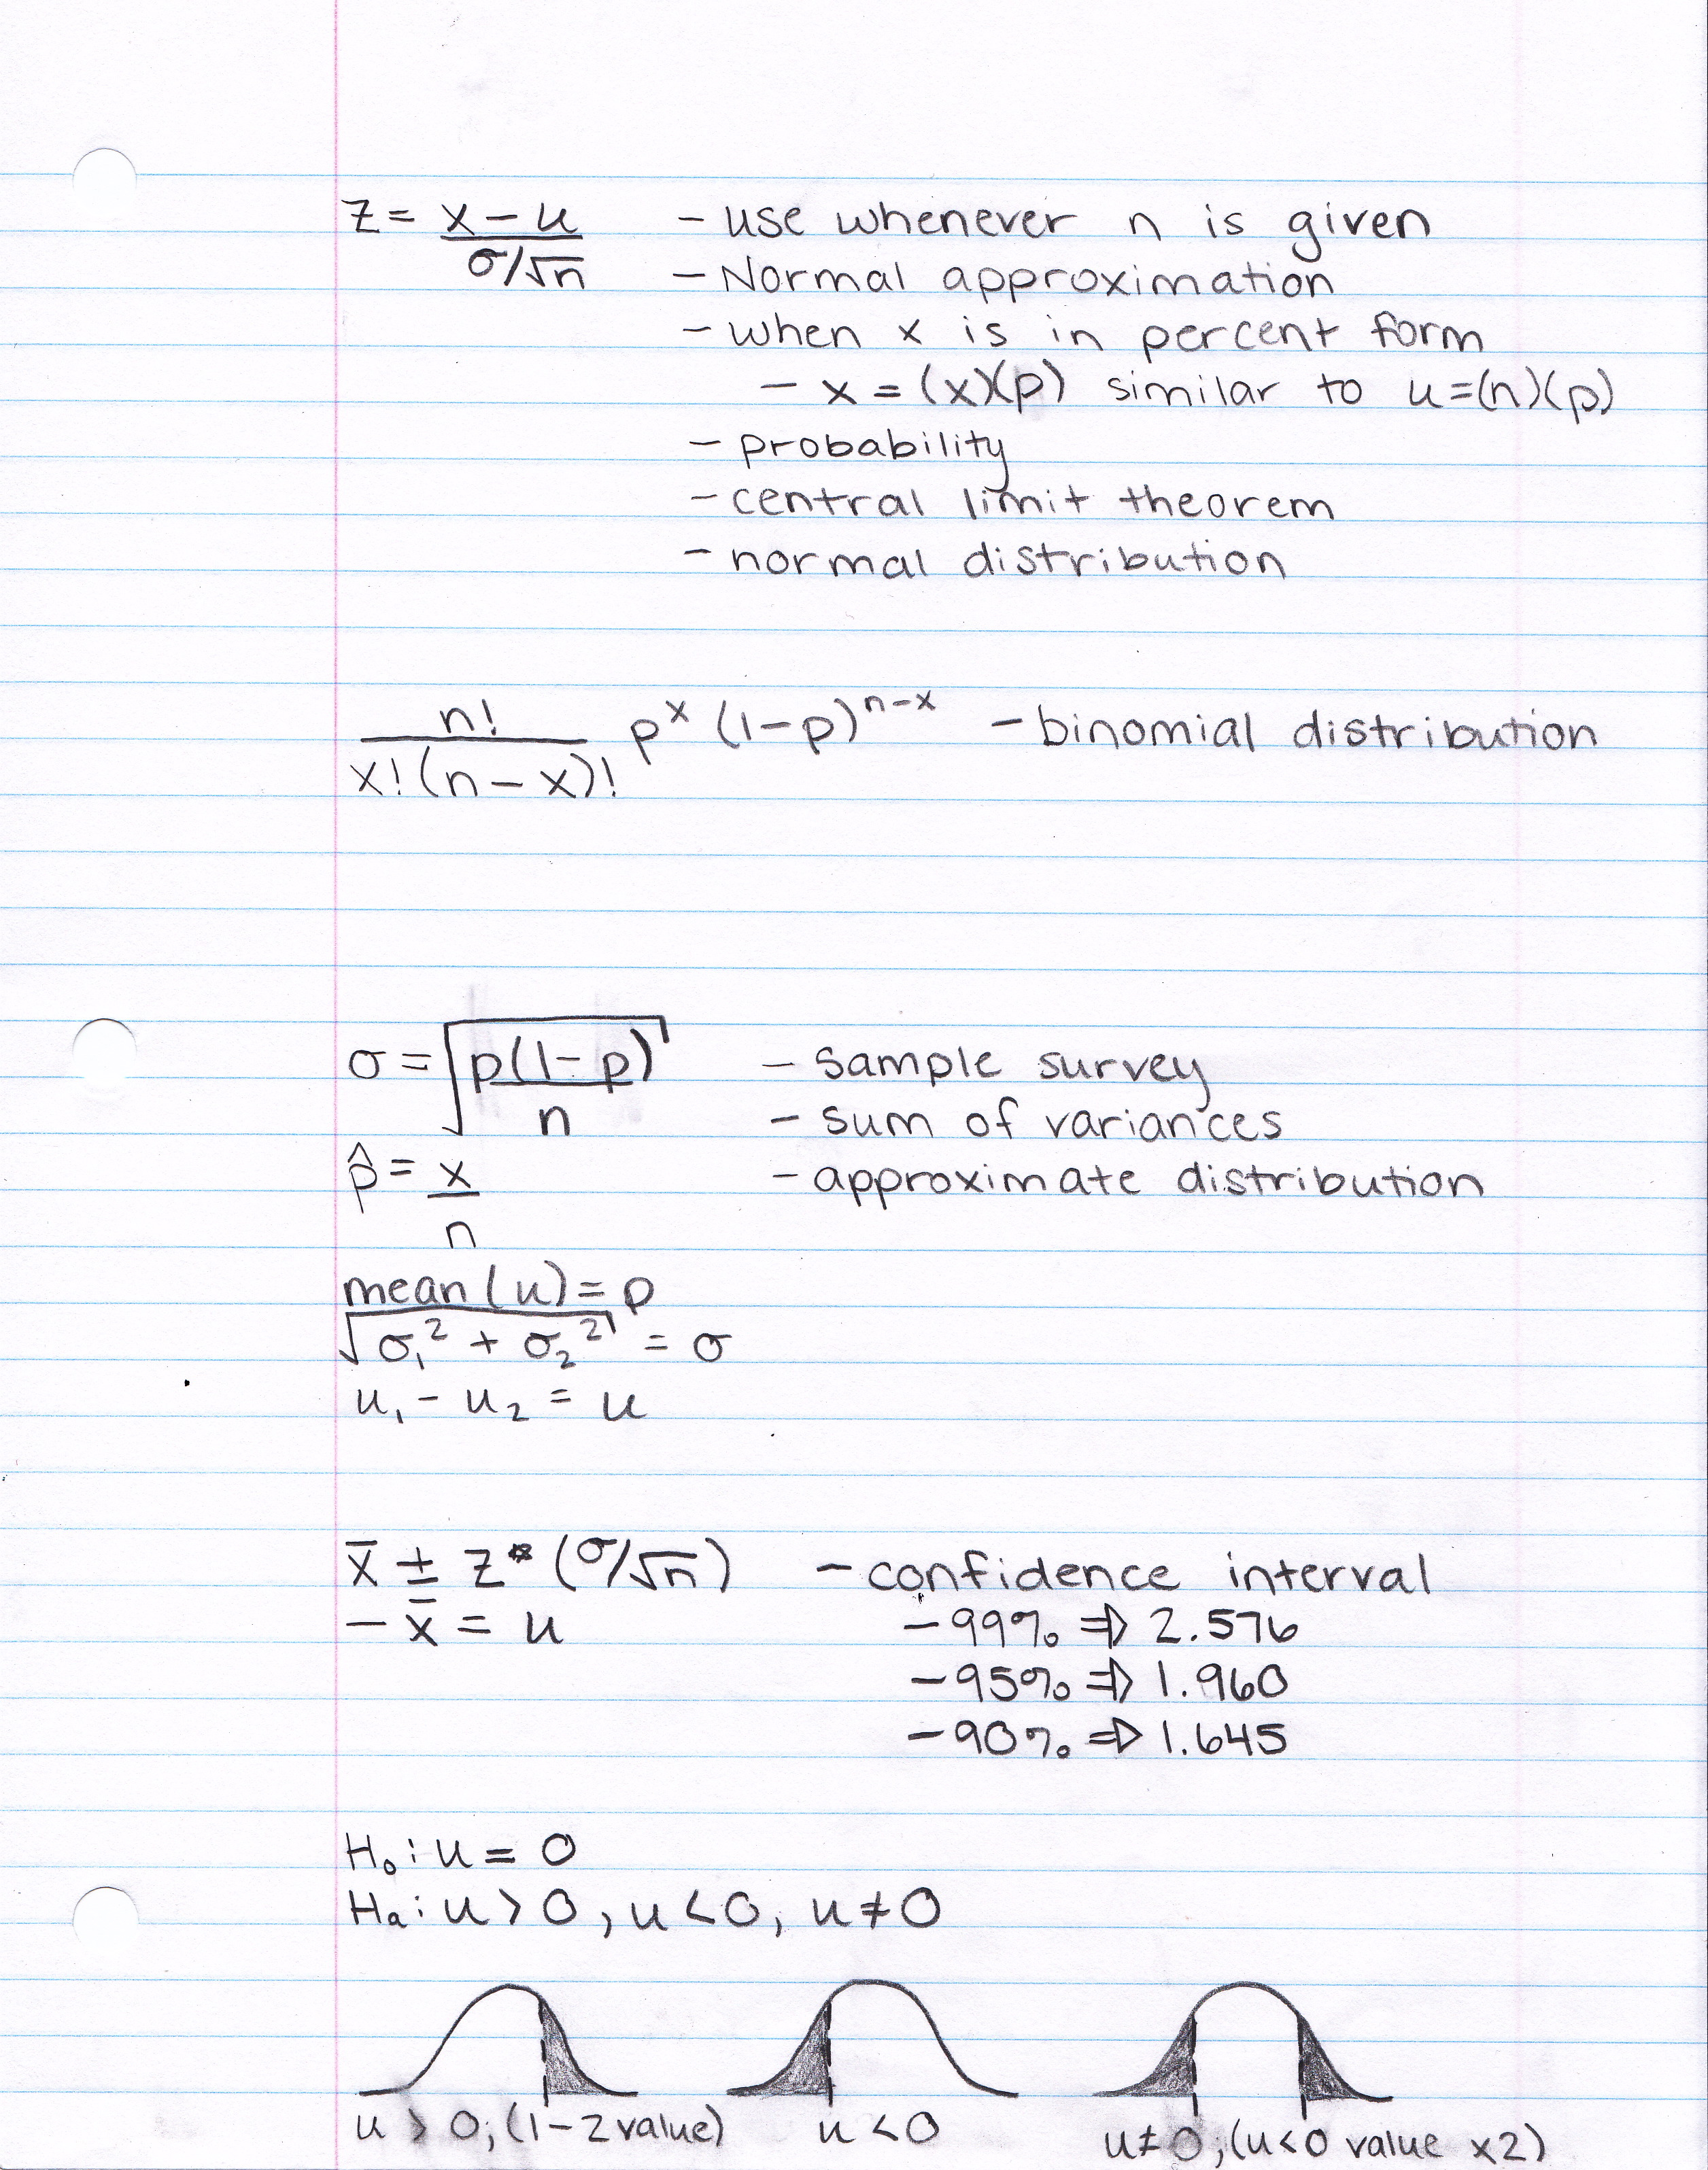 z = x - u / σ/√n - use whenever n is given
- Normal approximation
- when x is in percent form
- x = (x)(p) similar to u=(n)(p)
- probability
- central limit theorem
- normal distribution
n! / x!(n-x)! p^x (1-p)^n-x - binomial distribution
σ = √p(1-p) / n - sample survey
- sum of variances
p̂ = x / n - approximate distribution
mean (u) = p
√σ₁² + σ₂² = σ
u₁ - u₂ = u
x̄ ± z* (σ/√n) - confidence interval
- x̄ = u - 99% ⇒ 2.576
- 95% ⇒ 1.960
- 90% ⇒ 1.645
H₀: u = 0
Hₐ: u > 0, u < 0, u ≠ 0
u > 0; (1 - z value) u < 0 u ≠ 0; (u<0 value x2)